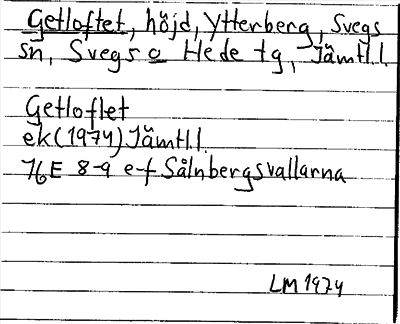 Getloftet, höjd, Ytterberg, Svegs
sn, Svegs o Hede tg, Jämtl.l.
Getloflet
ek(1974) Jämtl.l.
76E 8-9 e-f Sålnbergsvallarna
LM 1974